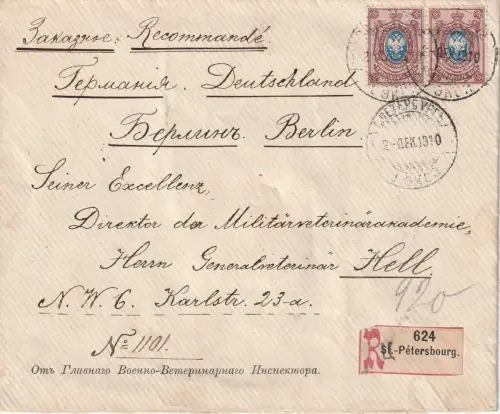 Заказное. Recommandé
Германія. Deutschland
Берлинъ. Berlin.
С.ПЕТЕРБУРГЪ
2-ДЕК.1910
Seiner Excellenz,
Direktor der Militärveterinärakademie,
Herrn Generalveterinär Hell
N.W.6. Karlstr. 23-a.
920
№ 1101.
R
624
St.-Pétersbourg.
Отъ Главнаго Военно-Ветеринарнаго Инспектора.